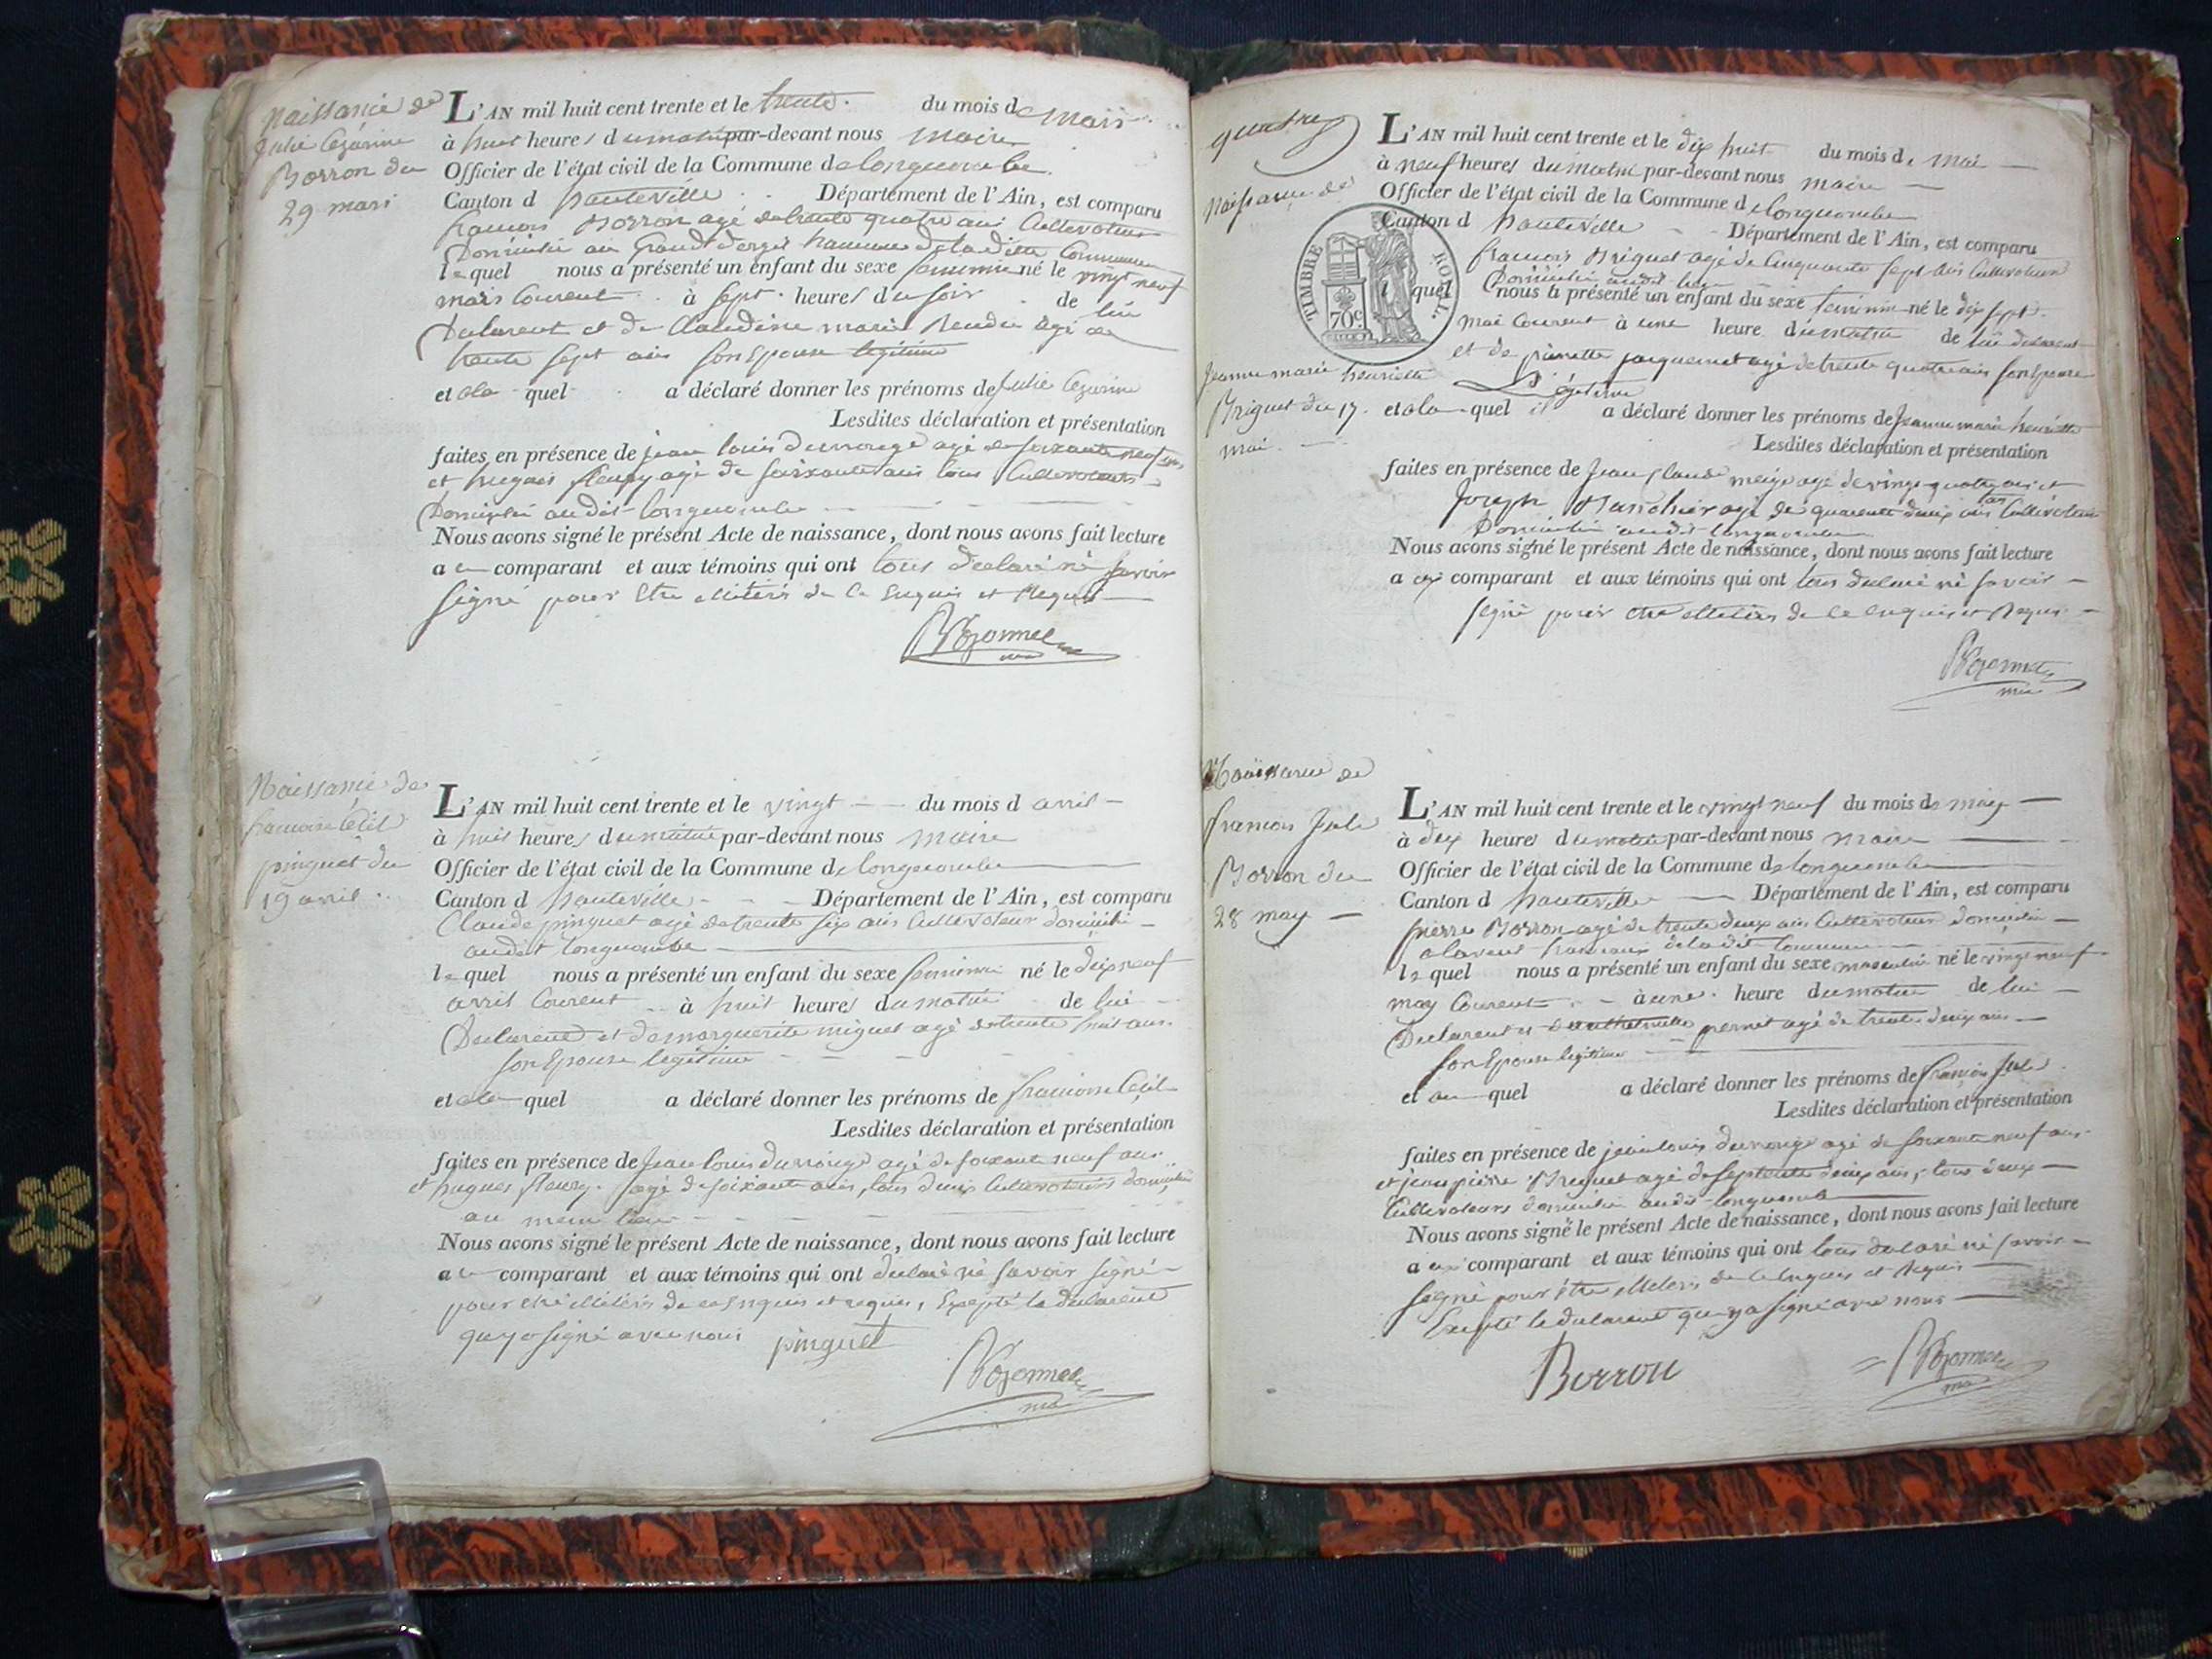 Naissance de
Julie Cezarine
Borron du
29 mars
L'AN mil huit cent trente et le trente du mois de mars
à huit heures du matin par-devant nous maire
Officier de l'état civil de la Commune de longecombe
Canton d hauteville Département de l'Ain, est comparu
francois Borron agé de trente quatre ans Cultivateur
Domicilié au Grand dergis hameau de la ditte Commune
lequel nous a présenté un enfant du sexe feminin né le vingt neuf
mars Courent à sept heures du soir de lui
Declarent et de Claudine marie agé de
trente sept ans son Epouse legitime
et ala quel a déclaré donner les prénoms de Julie Cezarine
Lesdites déclaration et présentation
faites en présence de jean louis durouge agé de soixante neuf ans
et hugues fleury agé de soixante ans tous Cultivateurs
Domicilié audit longecombe
Nous avons signé le présent Acte de naissance, dont nous avons fait lecture
a ce comparant et aux témoins qui ont tous declaré ne savoir
signé pour etre de ce Enquis et Requis
Naissance de
francoise Cecil
pinguet du
19 avril
L'AN mil huit cent trente et le vingt du mois d avril
à huit heures du matin par-devant nous maire
Officier de l'état civil de la Commune de longecombe
Canton d hauteville Département de l'Ain, est comparu
Claude pinguet agé de trente six ans Cultivateur domicilié
audit longecombe
lequel nous a présenté un enfant du sexe feminin né le dix neuf
avril Courent à huit heures du matin de lui
Declarent et de marguerite miguet agé de trente huit ans
son Epouse legitime
et ala quel a déclaré donner les prénoms de francoise Cecil
Lesdites déclaration et présentation
faites en présence de Jean louis durouge agé de soixante neuf ans
et hugues fleury agé de soixante ans, tous deux Cultivateurs domicilié
au meme lieu
Nous avons signé le présent Acte de naissance, dont nous avons fait lecture
a ce comparant et aux témoins qui ont declaré ne savoir signé
pour etre de ce Enquis et requis, Excepté le declarent
qui y a signé avec nous pinguet
quatre
Naissance de
Jeanne marie henriette
Briguet du 17
mai
TIMBRE ROYAL
70c
L'AN mil huit cent trente et le dix huit du mois de mai
à neuf heures du matin par-devant nous maire
Officier de l'état civil de la Commune de longecombe
Canton d hauteville Département de l'Ain, est comparu
francois Briguet agé de Cinquante sept ans Cultivateur
Domicilié audit lieu
lequel nous a présenté un enfant du sexe feminin né le dix sept
mai Courent à une heure du matin de lui declarent
et de pierrette jacquemet agé de trente quatre ans son Epouse
Légitime
et ala quel il a déclaré donner les prénoms de Jeanne marie henriette
Lesdites déclaration et présentation
faites en présence de Jean Claude agé de vingt quatre ans et
Joseph agé de quarente deux ans Cultivateur
Domicilié audit longecombe
Nous avons signé le présent Acte de naissance, dont nous avons fait lecture
a comparant et aux témoins qui ont tous declaré ne savoir
signé pour etre de ce enquis et Requis
Naissance de
francois Jule
Borron du
28 may
L'AN mil huit cent trente et le vingt neuf du mois de may
à dix heures du matin par-devant nous maire
Officier de l'état civil de la Commune de longecombe
Canton d hauteville Département de l'Ain, est comparu
pierre Borron agé de trente deux ans Cultivateur domicilié
hameau de la dit Commune
lequel nous a présenté un enfant du sexe masculin né le vingt neuf
may Courent à une heure du matin de lui
Declarent et pernet agé de trente deux ans
son Epouse legitime
et au quel a déclaré donner les prénoms de francois Jule
Lesdites déclaration et présentation
faites en présence de jean louis durouge agé de soixante neuf ans
et jean pierre Briguet agé de septente deux ans, tous deux
Cultivateurs domicilié audit longecombe
Nous avons signé le présent Acte de naissance, dont nous avons fait lecture
a comparant et aux témoins qui ont tous declaré ne savoir
signé pour être de ce Enquis et Requis
Excepté le declarent qui y a signé avec nous
Borron